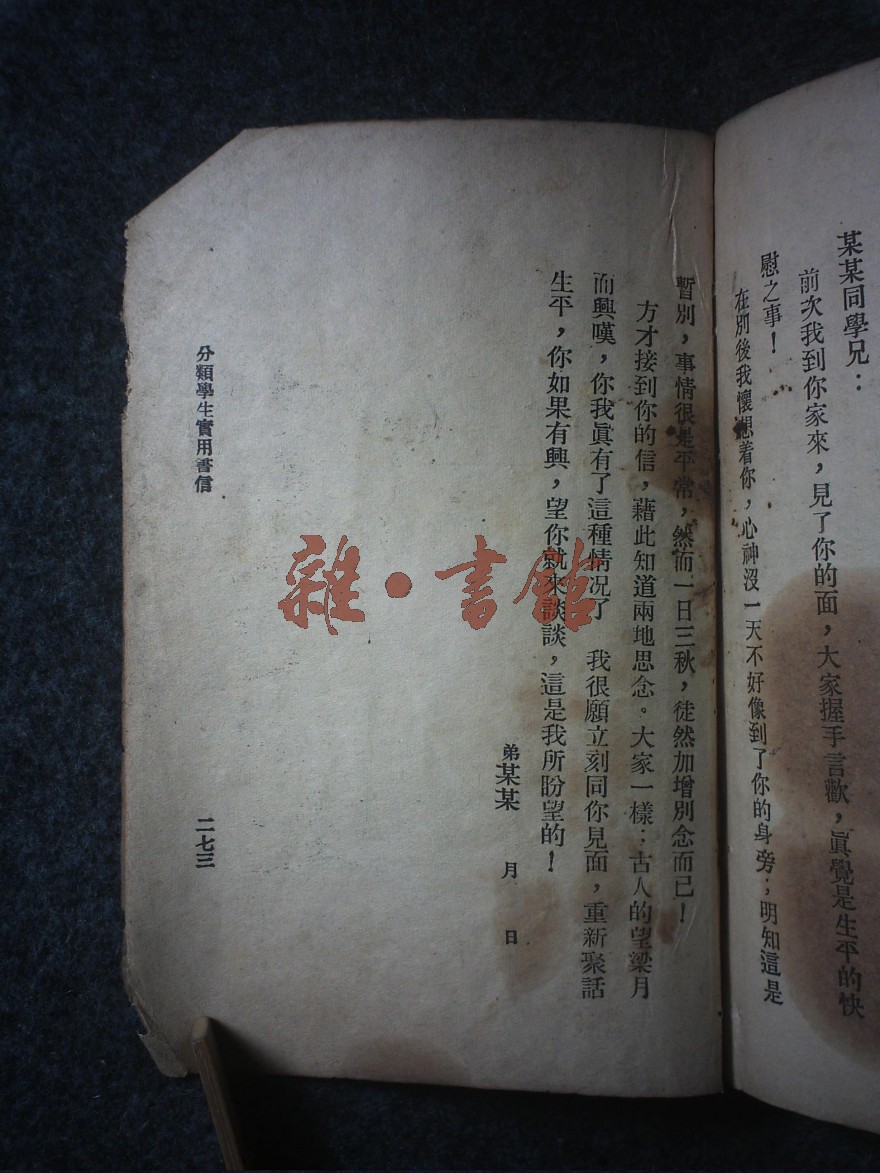 某某同學兄：
前次我到你家來，見了你的面，大家握手言歡，眞覺是生平的快
慰之事！
在別後我懷想着你，心神沒一天不好像到了你的身旁；明知這是
暫別，事情很是平常，然而一日三秋，徒然加增別念而已！
方才接到你的信，藉此知道兩地思念。大家一樣：古人的望梁月
而興嘆，你我眞有了這種情况了　我很願立刻同你見面，重新聚話
生平，你如果有興，望你就來談談，這是我所盼望的！
弟某某　月　日
分類學生實用書信
二七三
雜·書館